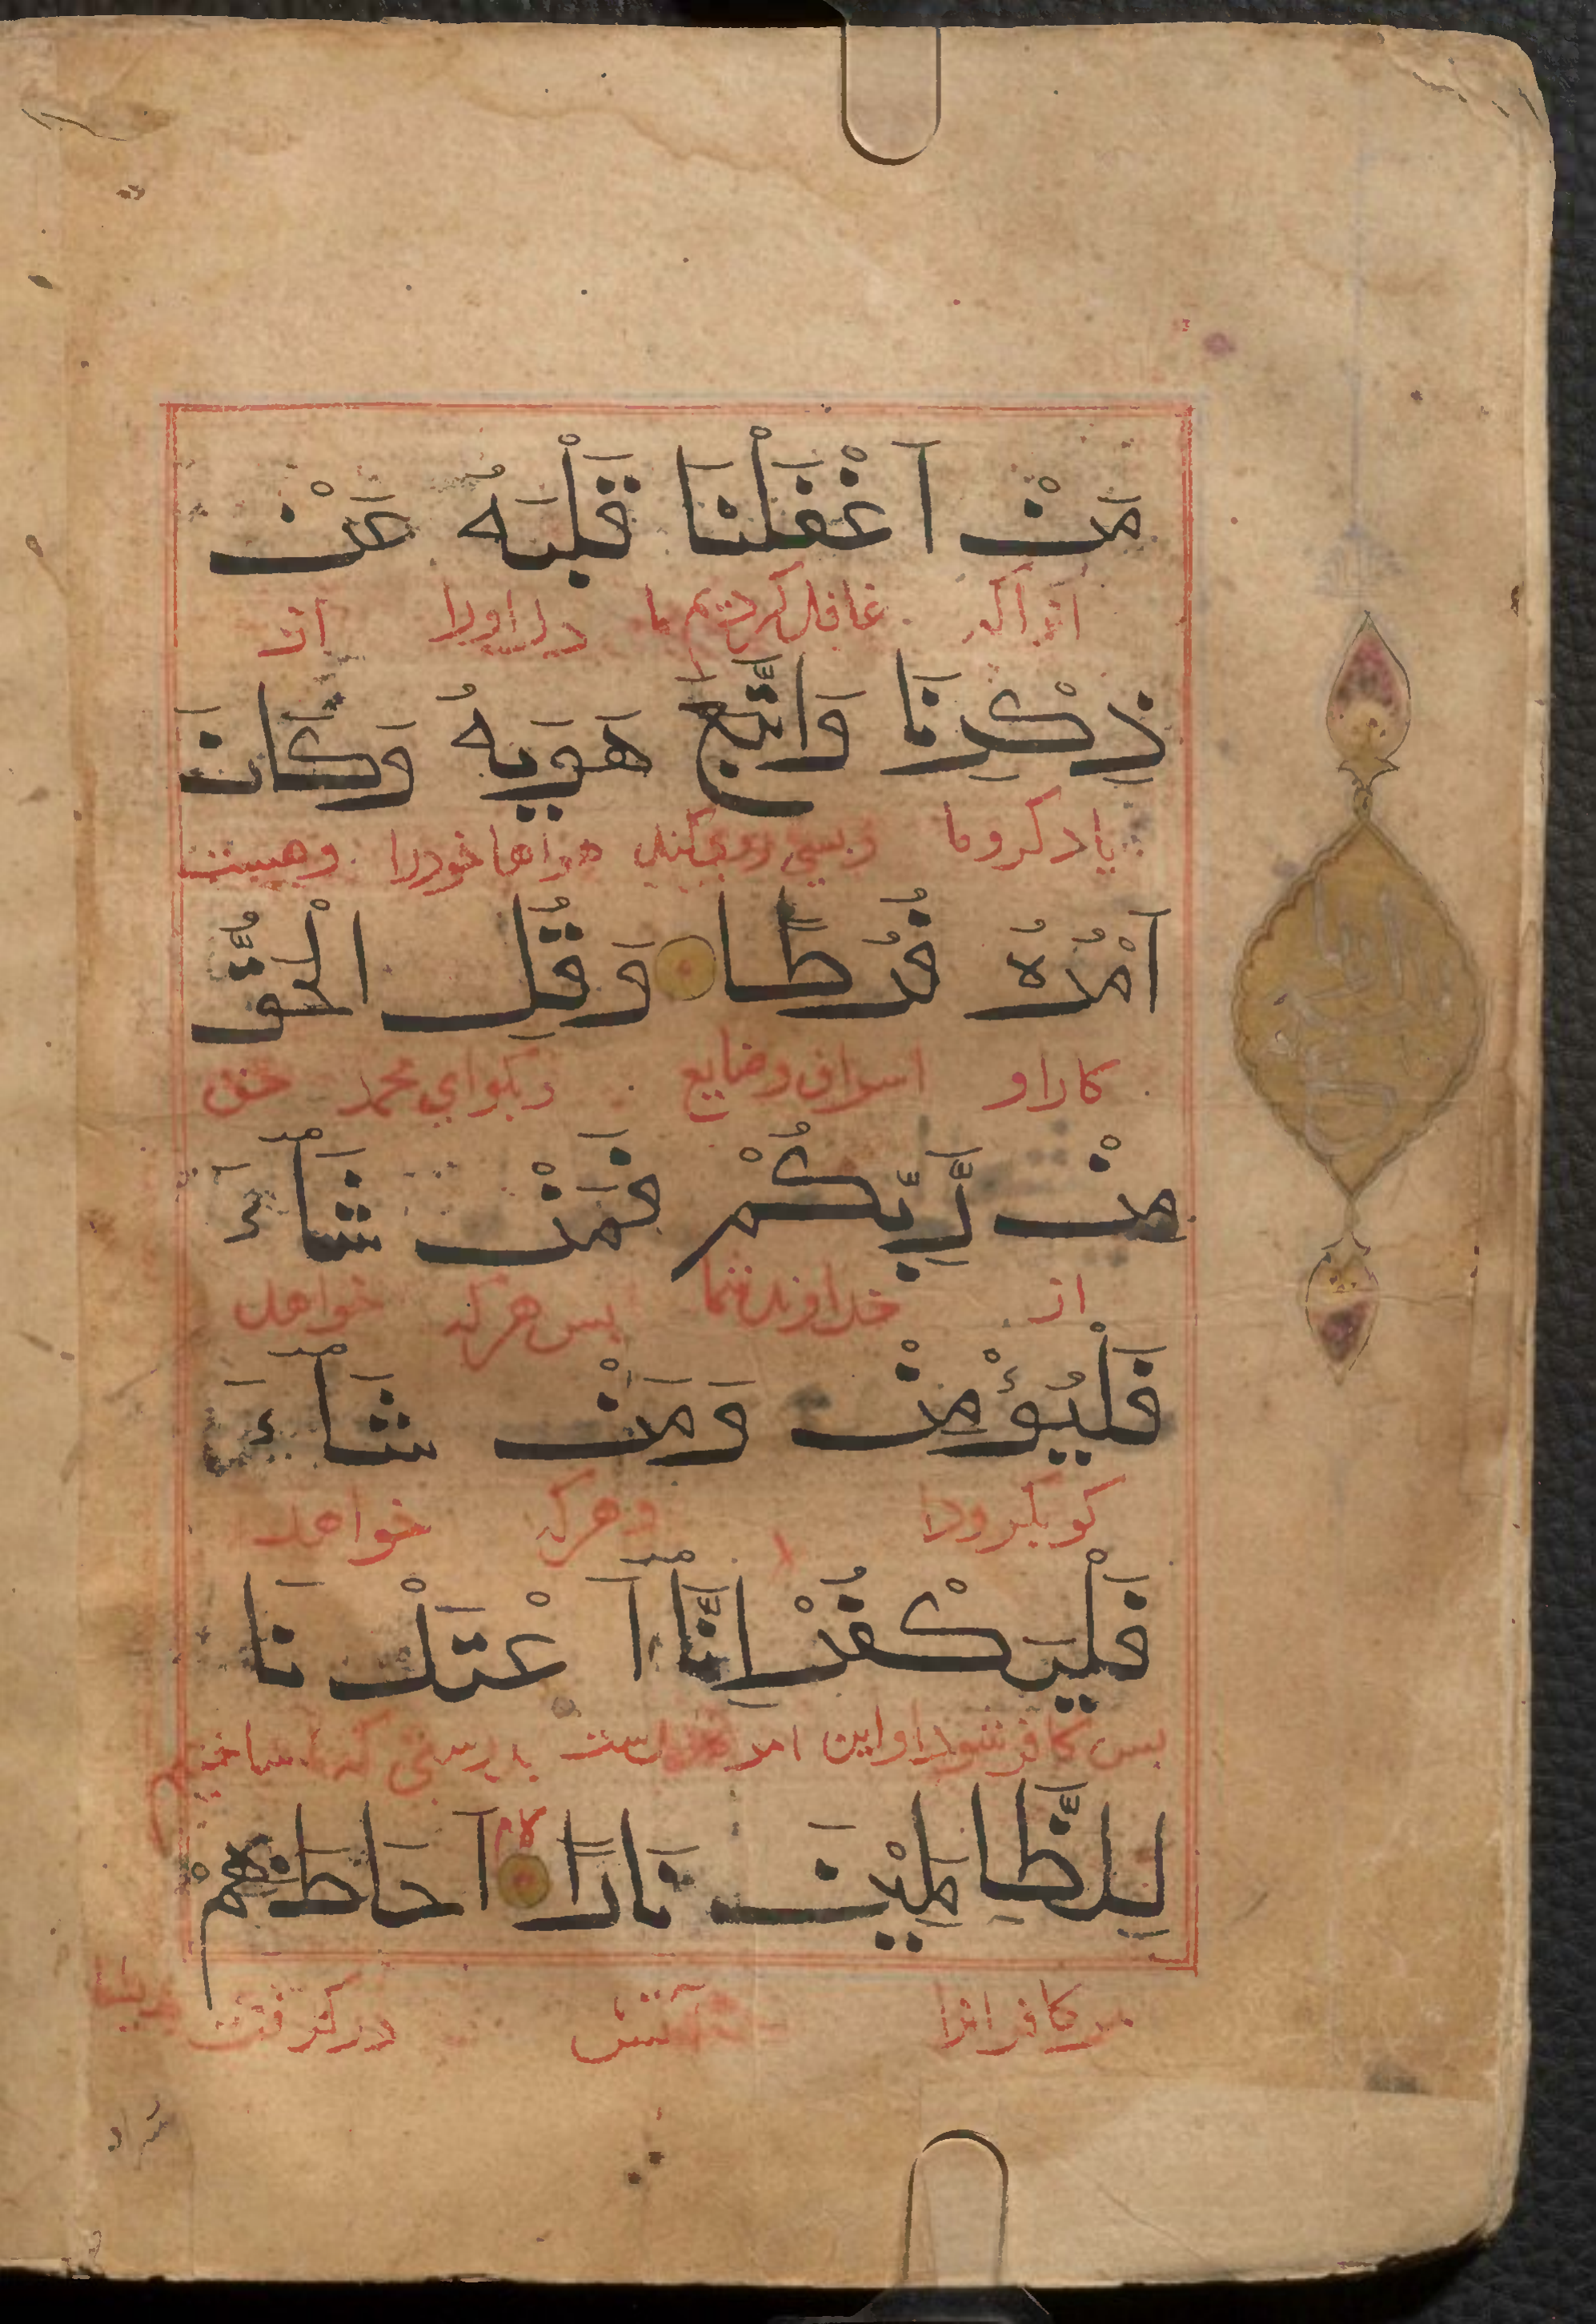 مَنْ اَغْفَلْنَا قَلْبَهُ عَنْ
غافل کردیم ما دل او را از
ذِكْرِنَا وَاتَّبَعَ هَوَيهُ وَكَانَ
یاد کرد ما هواها خود را وهست
اَمْرُهُ فُرُطًا وَقُلِ الْحَقُّ
کار او اسراف و ضایع و بکو ای محمد حق
مِنْ رَّبِّكُمْ فَمَنْ شَآءَ
از خداوند شما بس هر که خواهد
فَلْيُؤْمِنْ وَمَنْ شَآءَ
کو بکرود وهر که خواهد
فَلْيَكْفُرْ اِنَّآ اَعْتَدْنَا
بس کافر شود او این امر است بدرستی که ما ساختیم
لِلظَّالِمِيْنَ نَارًا اَحَاطَ بِهِمْ
مر کافرانرا آتش در کرفت